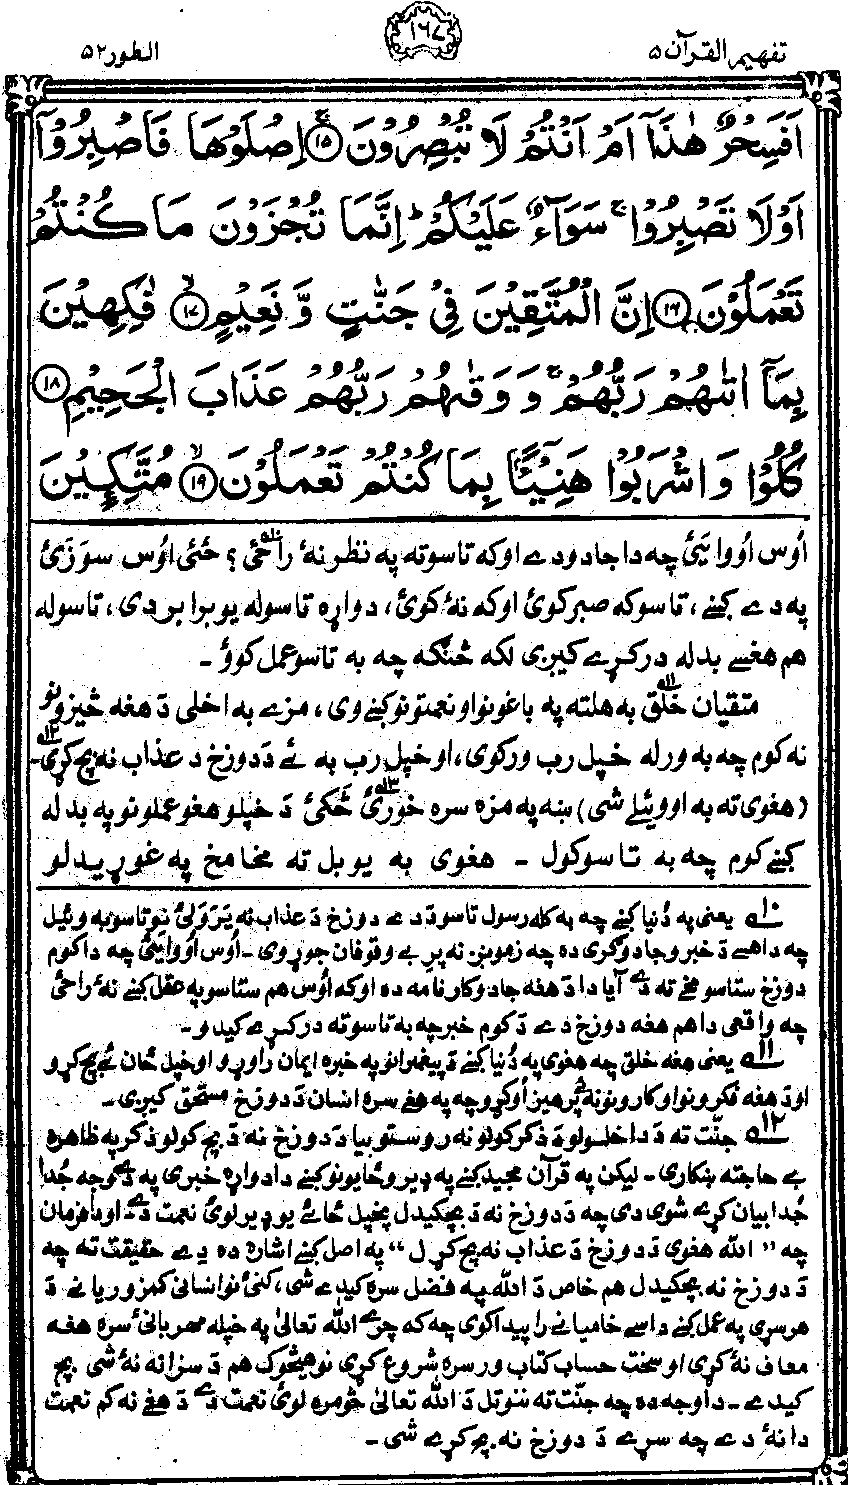 تفهيم القرآن ۵
۱۶۷
الطور ۵۲
اَفَسِحْرٌ هٰذَاۤ اَمْ اَنْتُمْ لَا تُبْصِرُوْنَ ۱۵ اِصْلَوْهَا فَاصْبِرُوْۤا
اَوْ لَا تَصْبِرُوْا ۚ سَوَآءٌ عَلَيْكُمْ ؕ اِنَّمَا تُجْزَوْنَ مَا كُنْتُمْ
تَعْمَلُوْنَ ۱۶ اِنَّ الْمُتَّقِيْنَ فِيْ جَنّٰتٍ وَّ نَعِيْمٍ ۱۷ فٰكِهِيْنَ
بِمَاۤ اٰتٰىهُمْ رَبُّهُمْ ۚ وَ وَقٰىهُمْ رَبُّهُمْ عَذَابَ الْجَحِيْمِ ۱۸
كُلُوْا وَ اشْرَبُوْا هَنِيْٓـًٔۢا بِمَا كُنْتُمْ تَعْمَلُوْنَ ۱۹ مُتَّكِـِٕيْنَ
اُوس اُووايئ چه دا جادو دے اوکه تاسوته په نظر نۀ راځي؟ ځئ اوُس سوزئ
په دے کښے، تاسوکه صبر کوئ اوکه نۀ کوئ، دواړه تاسو له يو برابر دي، تاسوله
هم هغسے بدله درکړے کيږي لکه څنګه چه به تاسو عمل کوؤ۔
متقيان خلق به هلته په باغونو او نعمتونو کښے وي، مزے به اخلي د هغه څيزونو
نه کوم چه به ورله خپل رب ورکوي، او خپل رب به ئے د دوزخ د عذاب نه بچ کړي۔
(هغوي ته به اووئيلے شي) ښه په مزه سره خورئ څکئ د خپلو هغو عملونو په بدله
کښے کوم چه به تاسو کول ۔ هغوي به يو بل ته مخامخ په غوړيدلو
۱۰ يعني په دُنيا کښے چه به کله رسول تاسو د دے دوزخ د عذاب نه يَرَولئ نو تاسو به وئيل
چه دا هسے د خبرو جادوګري ده چه زمونږ نه پرے بے وقوفان جوړوي ۔ اُوس اُووايئ چه دا کوم
دوزخ ستاسو مخے ته دے آيا دا د هغه جادو کارنامه ده او که اُوس هم ستاسو په عقل کښے نۀ راځي
چه واقعي دا هم هغه دوزخ دے د کوم خبر چه به تاسو ته درکړے کيدو۔
۱۱ يعني هغه خلق چه هغوي په دُنيا کښے د پيغمبرانو په خبره ايمان راوړو او خپل ځان ئے بچ کړو
او د هغه فکرونو او کارونو نه پرهيز اُوکړو چه په هغے سره انسان د دوزخ مستحق کيږي۔
۱۲ جنّت ته د داخلولو د ذکر کولو نه روستو بيا د دوزخ نه د بچ کولو ذکر په ظاهره
بے حاجته ښکاري ۔ ليکن په قرآن مجيد کښے په ډيرو ځايونو کښے دا دواړه خبرې په دے وجه جُدا
جُدا بيان کړے شوي دي چه د دوزخ نه د بچکيدل پخپل ځائے يو ډير لوئ نعمت دے۔ او دا فرمان
چه "الله هغوي د دوزخ د عذاب نه بچ کړل" په اصل کښے اشاره ده دے حقيقت ته چه
د دوزخ نه بچکيدل هم خاص د الله په فضل سره کيدے شي، کنې نو انساني کمزورياني د
هر سړي په عمل کښے داسے خاميانے را پيدا کوي چه که چرے الله تعالىٰ په خپله مهربانۍ سره هغه
معاف نۀ کړي او سخت حساب کتاب ورسره شروع کړي نو هيڅوک هم د سزا نه نۀ شي بچ
کيدے ۔ دا وجه ده چه جنّت ته ننوتل د الله تعالىٰ څومره لوئ نعمت دے د هغے نه کم نعمت
دا نۀ دے چه سړے د دوزخ نه بچ کړے شي۔